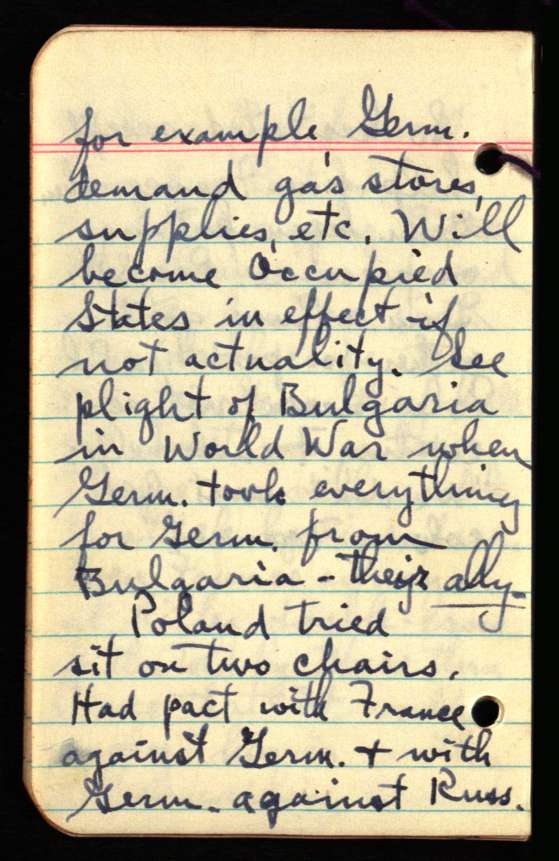 for example, Germ.
demand gas stores,
supplies, etc. Will
become Occupied
States in effect if
not actuality. See
plight of Bulgaria
in World War when
Germ. took everything
for Germ. from
Bulgaria - their ally.
Poland tried
sit on two chairs.
Had pact with France
against Germ. + with
Germ. against Russ.